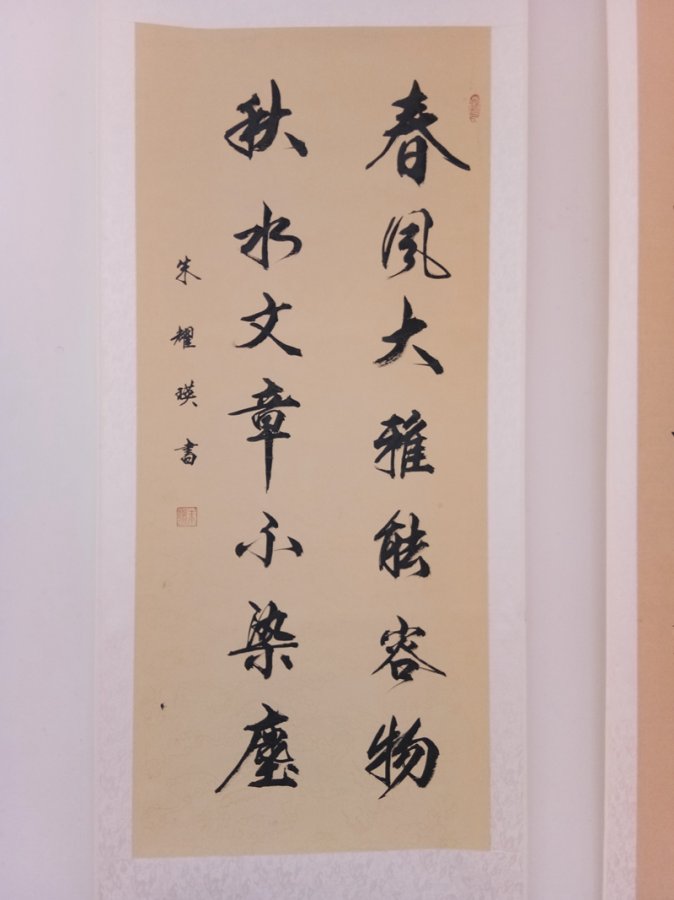 春風大雅能容物
秋水文章不染塵
朱耀瑛書